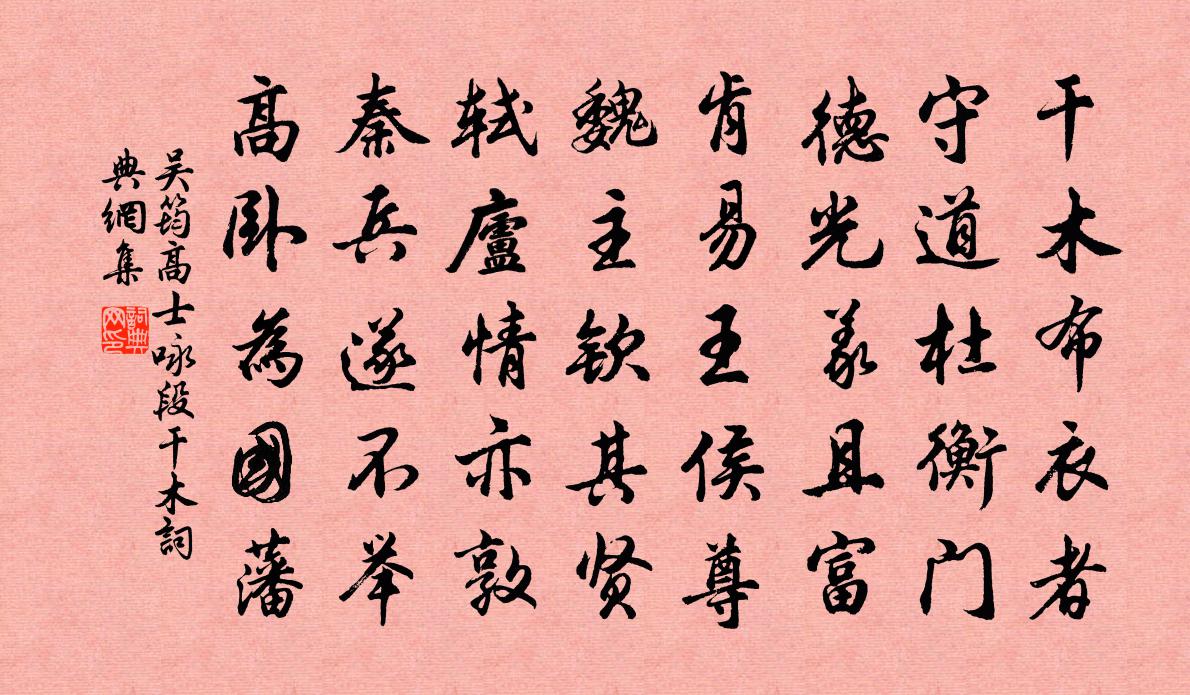 干木布衣者
守道杜衡门
德光义且富
肯易王侯尊
魏主钦其贤
轼廬情亦敦
秦兵遂不举
高卧為國藩
吴筠高士咏段干木詞
典網集
詞典网印